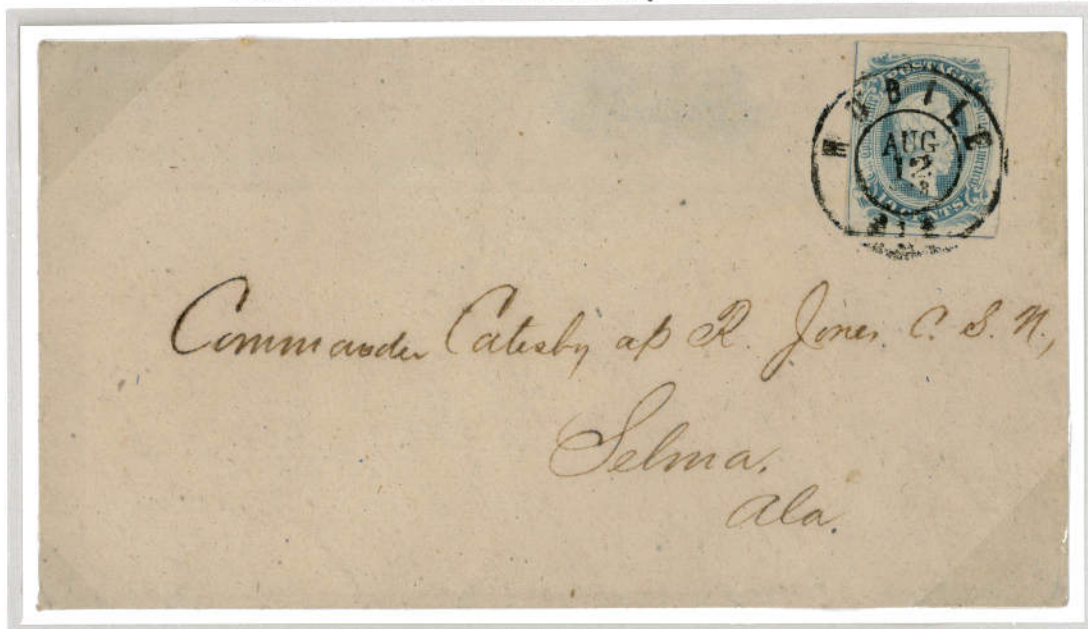 POSTAGE
MOBILE
AUG
12
CENTS
Commander Catesby ap R. Jones. C. S. N.,
Selma.
Ala.